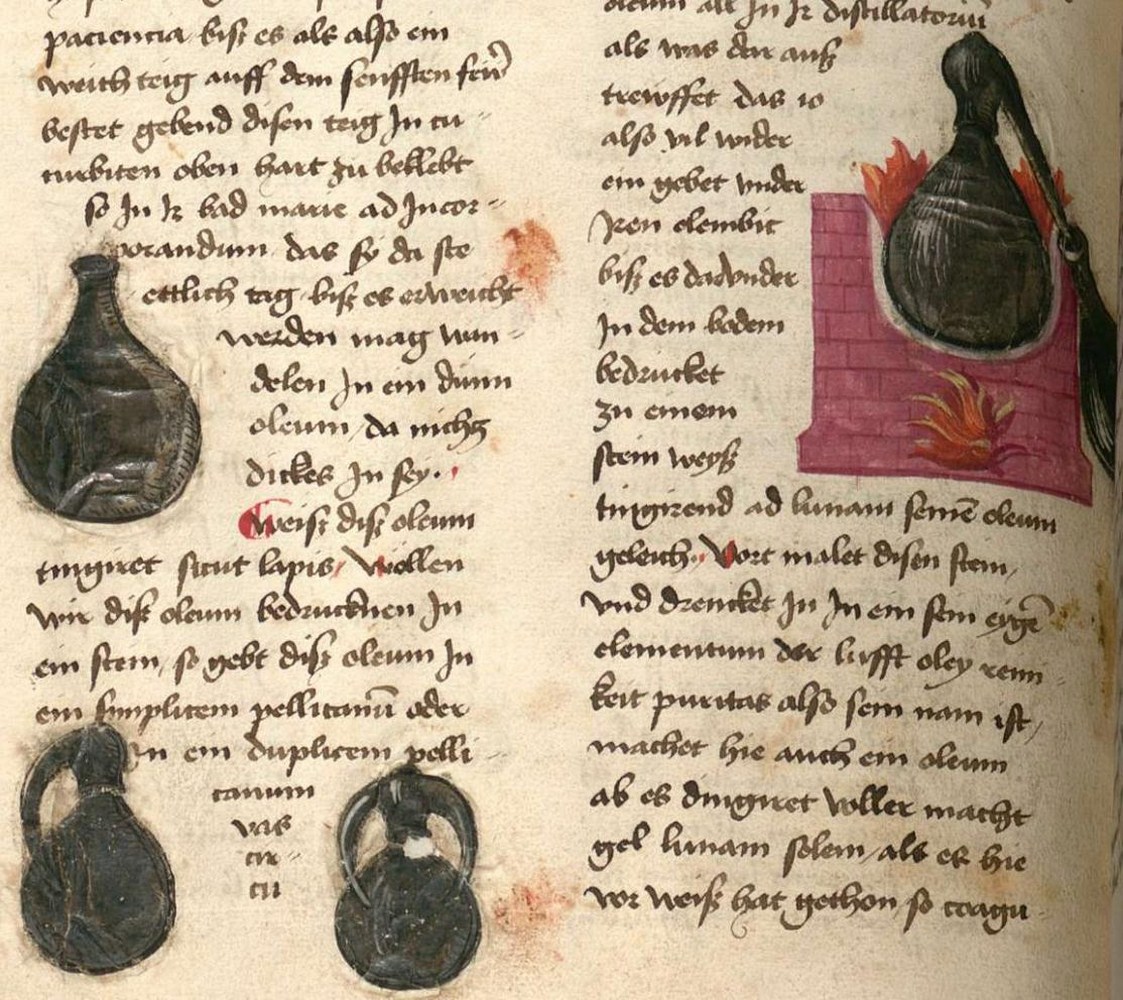 paciencia bisz es als also ein
weich teig auff dem senfften feiv̄
bestet gebend disen teig In cu-
curbiten oben hart zu beklebt
so In Ir bad marie ad Incor-
porandum das sy da ste
ettlich tag bisz es erweicht
werden mag wan-
delen In ein dünn
oleum, da nichs
dickes In sey.
Weisz disz oleum
tingiret sicut lapis, Wollen
wir disz oleum bedrucknen In
ein stein, so gebt disz oleum In
ein simplicem pellicanū oder
In ein duplicem pelli
canum
vas
cir-
cu
oleum all In Ir distillatoriū
als was dar ausz
trewffet das 10
also vil wider
ein gebet vnder
Iren elembic
bisz es darvnder
In dem bodem
bedrucket
zu einem
stein weysz
tingirend ad lunam seinē oleum
geleich. Vort malet disen stein,
vnd drencket In In ein sein eigē
elementum der lufft oley rein-
keit puritas also sein nam ist,
machet hie auch ein oleum
ab es dingiret voller macht
gel lunam solem, als er hie
vor weisz hat gethon so coagu-